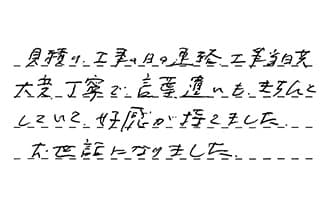 見積り、工事の日の連絡、工事当日共
大変丁寧で、言葉遣いも、きちんと
していて、好感が持てました。
お世話になりました。